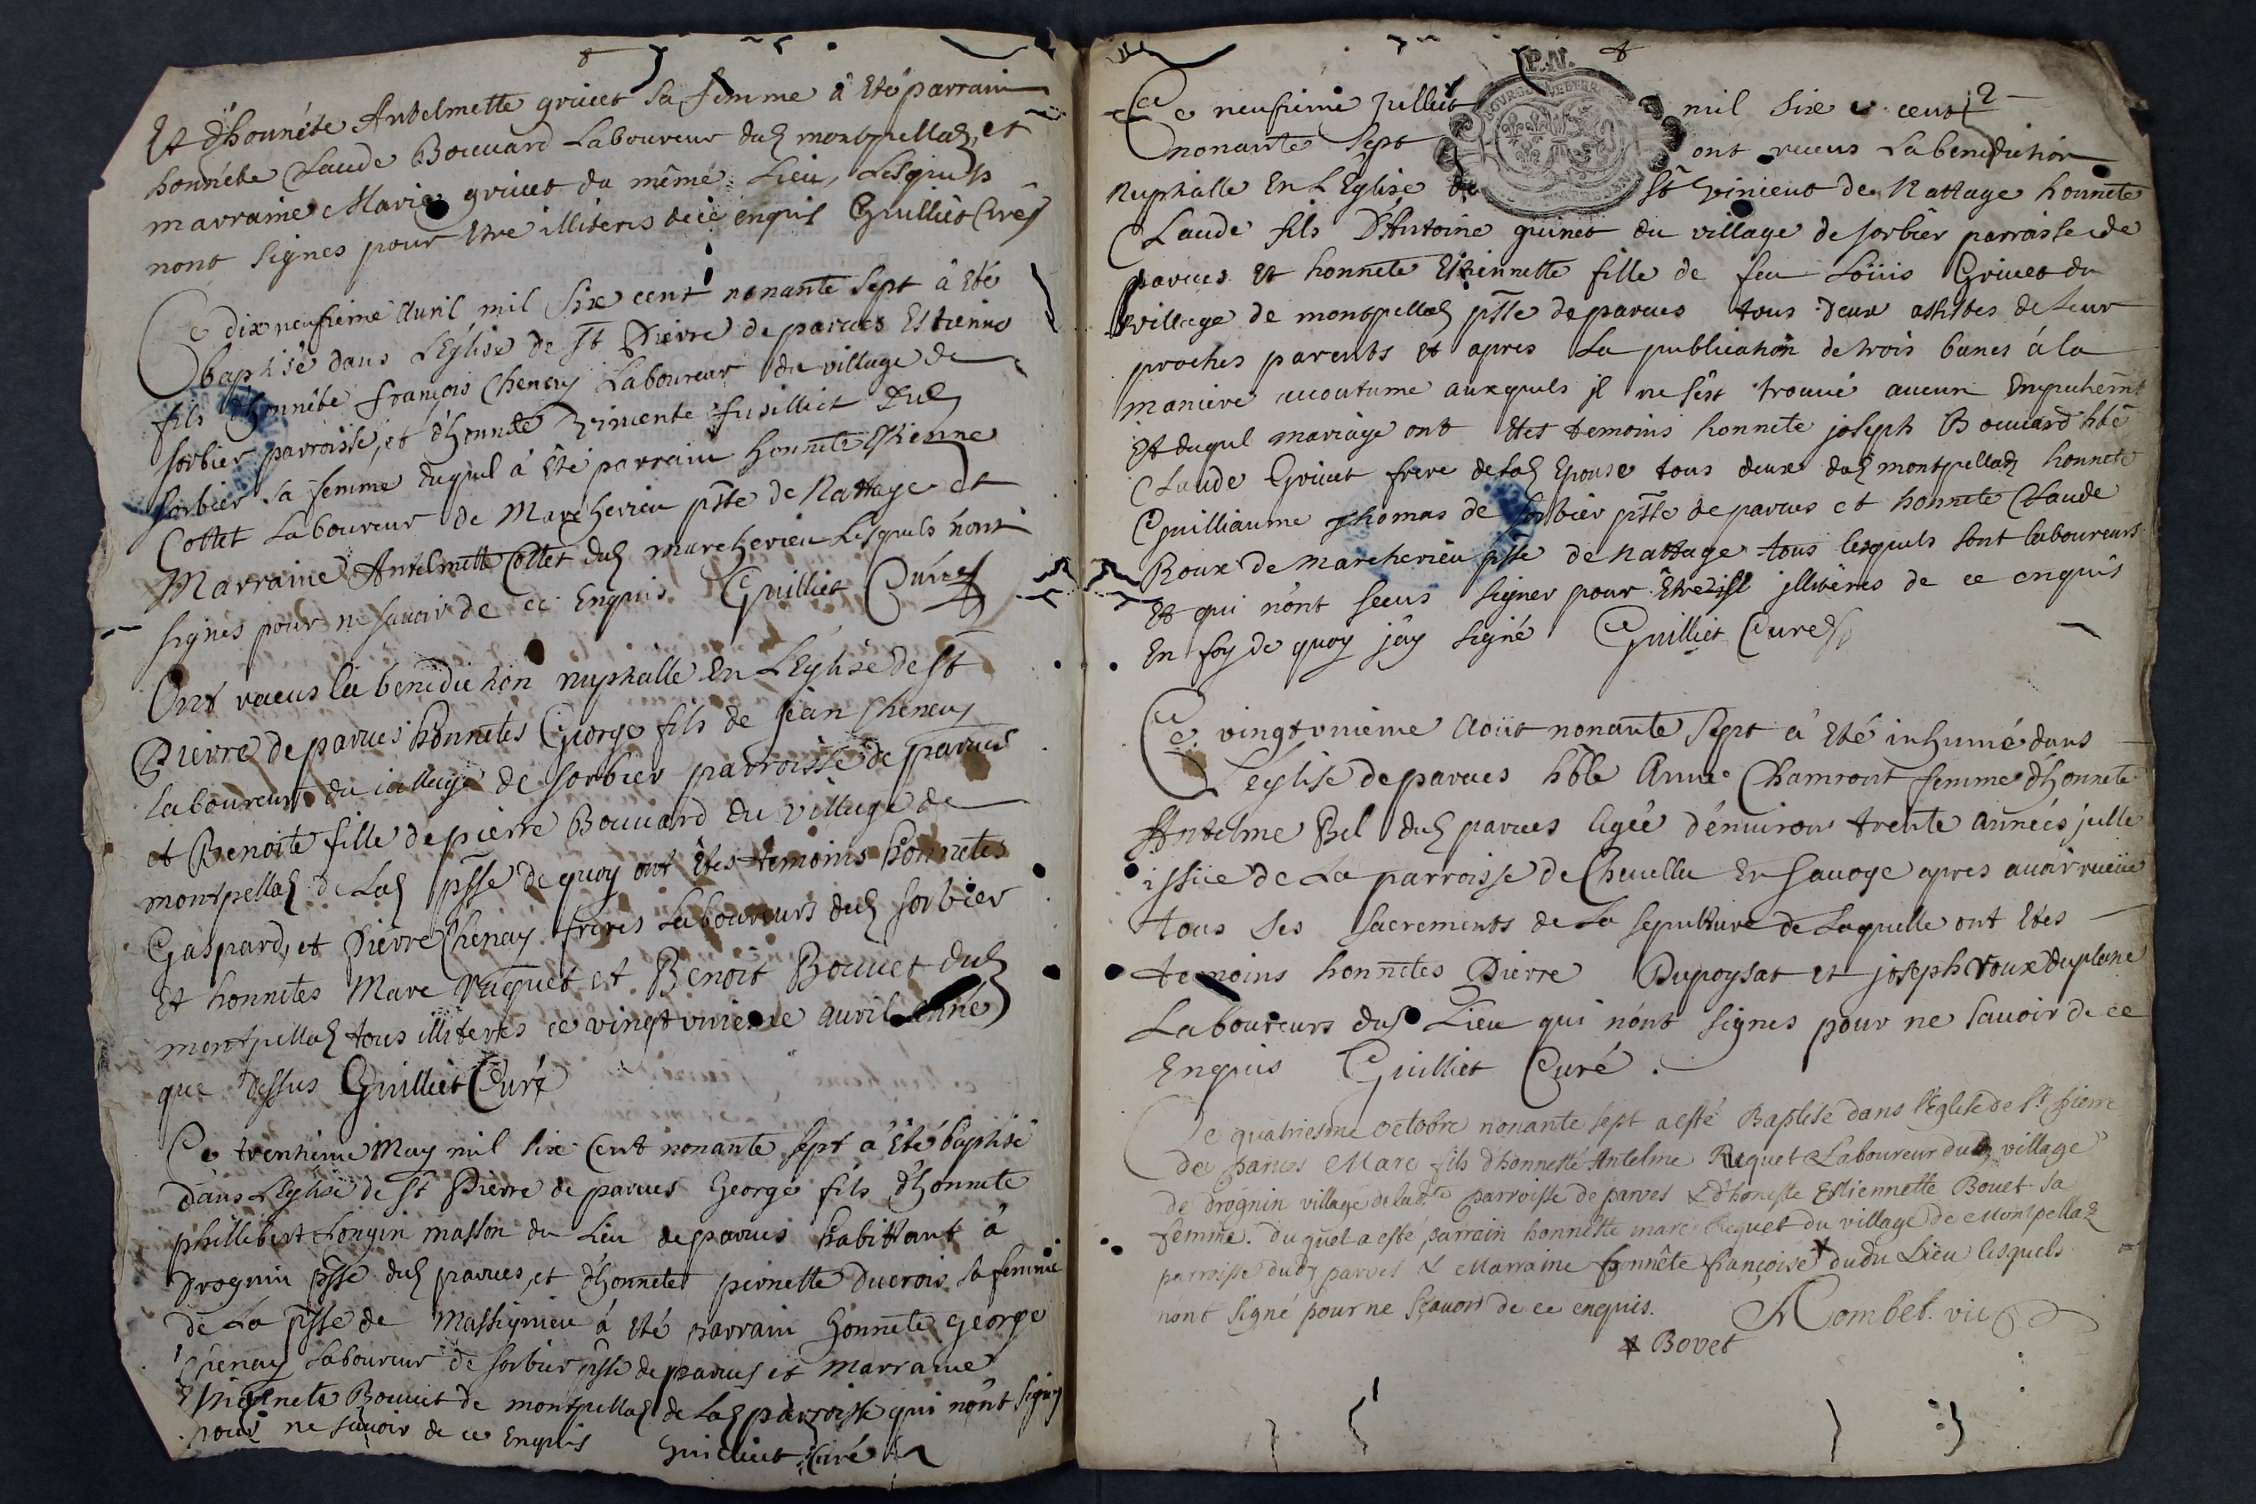 Et d'honnéte Antelmette grivet sa femme à Eté parrain
honnéte Claude Bouvard Laboureur dud montpellaz, et
marraine Marie grivet du même Lieu, Lesquels
nont signes pour Etre illiteris de ce enquis Guilliet Curé
Ce dix neufieme Avril mil six cent nonante sept à Eté
baptisé dans L'Eglise de St Pierre de parves Estienne
fils d'honnéte françois Chenay Laboureur du village de
sorbier parroisse, et d'honnéte fusilliet Dud
sorbier sa femme duquel à Eté parrain honnete Etienne
Collet Laboureur de Marcherieu psse de Nattage et
Marraine Antelmette Collet dud marcherieu Lesquels nont
signés pour ne savoir de ce Enquis. Guilliet Curé
Ont receus la benediction nuptialle En L'Eglise de St
Pierre de parves honnetes George fils de jean Chenay
laboureur du village de sorbier parroisse de parves
et Benoite fille de pierre Bouvard du village de
montpellaz de Lad psse de quoy ont Etes temoins honnetes
Gaspard, et Pierre Chenay freres Laboureurs dud sorbier
Et honnetes Marc raquet et Benoit Bouvet dud
montpellaz tous illiteres ce vingt unieme avril anné
que dessus Guilliet Curé
Ce trentieme May mil six Cent nonante sept à Eté baptisé
dans L'Eglise de St Pierre de parves George fils d'honnete
phillibert Longin masson du Lieu de parves habittant à
drognin psse dud parves, et d'honnete pernette ducrois sa femme
de La psse de Massignieu à eté parrain honnete George
Chenay Laboureur de sorbier psse de parves et marraine
Bouvet de montpellaz de Lad parroisse qui nônt signes
pour ne savoir de ce Enquis Guilliet Curé
P.N.
2
Ce neufieme Juillet mil six cent
nonante sept ont receus La benediction
nuptialle En L'Eglise de St vincent de Nattage honnete
Claude fils D'Antoine guinet du village de sorbier parroisse de
parves Et honnete Etiennette fille de feu Loüis Grivet du
village de montpellaz psse de parves tous deux assistes de Leur
proches parents et apres La publication de trois bancs à la
maniere accoutume auxquels il ne s'est trouvé aucun Empechemt
Et duquel mariage ont Etes temoins honnete joseph Bouvard hte
Claude Grivet frere de lad Epouse tous deux dud montpellaz honnete
Guilliaume Thomas de sorbier psse de parves et honnete Claude
Roux de marcherieu psse de nattage tous lesquels sont laboureurs
Et qui nônt sceus signer pour Etre ill illiteres de ce enquis
En foy de quoy j'ay signé Guilliet Curé
Ce vingt unieme Aoüt nonante sept à Eté inhumé dans
L'eglise de parves hble Anne Chamront femme d'honnete
Antelme Bel dud parves agée d'environ trente années jcelle
issüe de La parroisse de Chevellu En Savoye apres avoir receüe
tous ses sacrements de La sepulture de Laquelle ont Etes
temoins honnetes Pierre Dupoysat et joseph roux duplane
Laboureurs dud Lieu qui nônt signes pour ne savoir de ce
Enquis Guilliet Curé.
Ce quatriesme octobre nonante sept a esté Baptisé dans l'Eglise de St pierre
de parves Marc fils d'honnesté Antelme Requet Laboureur dud village
de drognin village de ladte parroisse de parves & d'honeste Estiennette Bouet sa
femme. duquel a esté parrain honneste marc Requet du village de Montpellaz
parroisse dud parves & Marraine honnête françoise * dudu Lieu lesquels
nont signé pour ne sçavoir de ce enquis. Rombet. vic
* Bovet